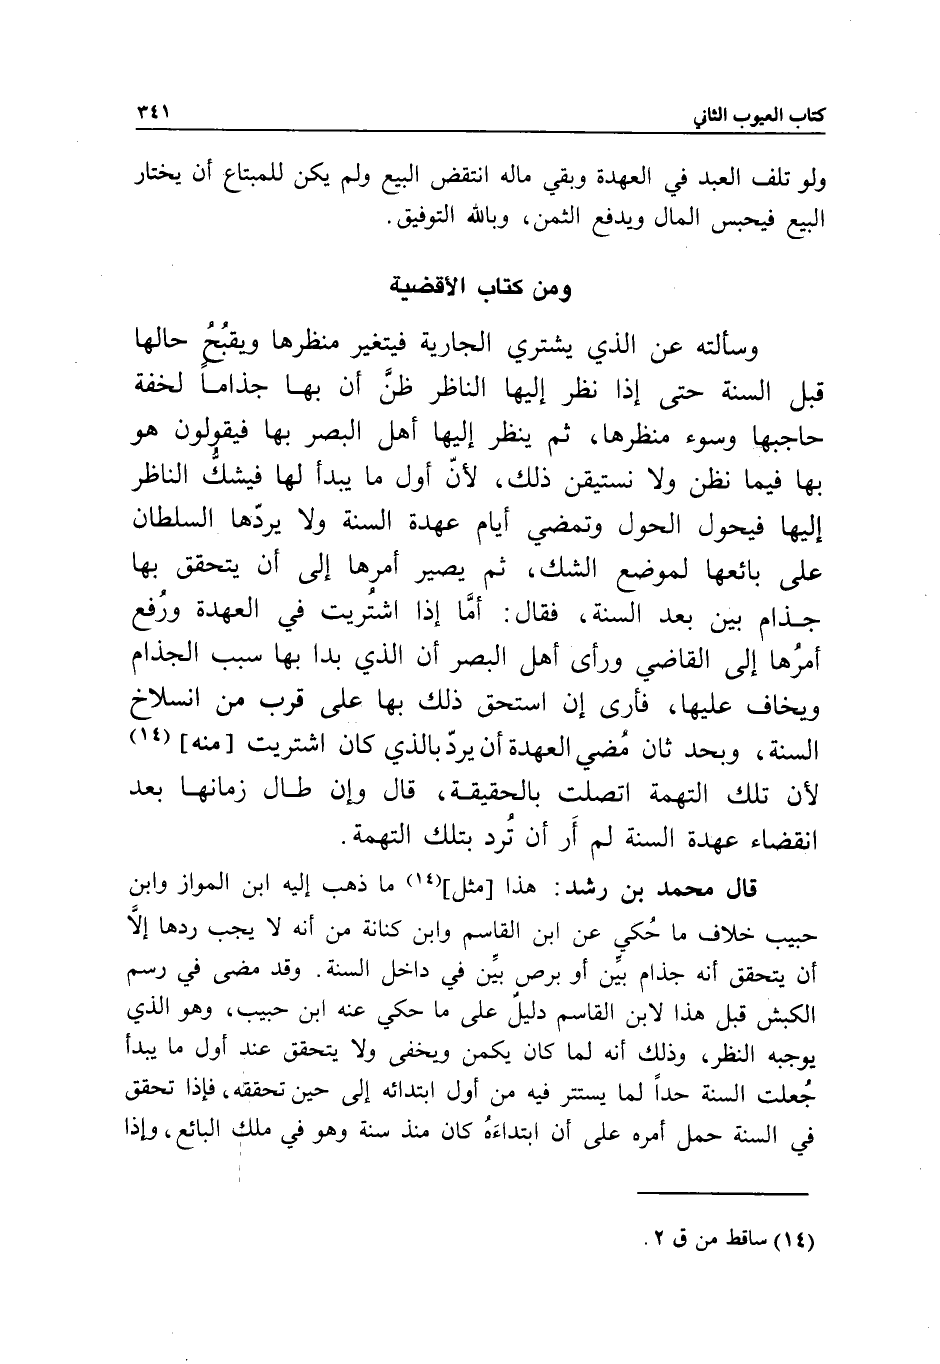 كتاب العيوب الثاني ٣٤١
ولو تلف العبد في العهدة وبقي ماله انتقض البيع ولم يكن للمبتاع أن يختار
البيع فيحبس المال ويدفع الثمن، وبالله التوفيق.
ومن كتاب الأقضية
وسألته عن الذي يشتري الجارية فيتغير منظرها ويقبُحُ حالها
قبل السنة حتى إذا نظر إليها الناظر ظنَّ أن بها جذاماً لخفة
حاجبها وسوء منظرها، ثم ينظر إليها أهل البصر بها فيقولون هو
بها فيما نظن ولا نستيقن ذلك، لأنّ أول ما يبدأ لها فيشكُّ الناظر
إليها فيحول الحول وتمضي أيام عهدة السنة ولا يردّها السلطان
على بائعها لموضع الشك، ثم يصير أمرها إلى أن يتحقق بها
جذام بين بعد السنة، فقال: أمَّا إذا اشتُريت في العهدة ورُفع
أمرُها إلى القاضي ورأى أهل البصر أن الذي بدا بها سبب الجذام
ويخاف عليها، فأرى إن استحق ذلك بها على قرب من انسلاخ
السنة، وبحد ثان مُضي العهدة أن يردّ بالذي كان اشتريت [منه] (١٤)
لأن تلك التهمة اتصلت بالحقيقة، قال وإن طال زمانها بعد
انقضاء عهدة السنة لم أَر أن تُرد بتلك التهمة.
قال محمد بن رشد: هذا [مثل](١٤) ما ذهب إليه ابن المواز وابن
حبيب خلاف ما حُكي عن ابن القاسم وابن كنانة من أنه لا يجب ردها إلاَّ
أن يتحقق أنه جذام بيِّن أو برص بيِّن في داخل السنة. وقد مضى في رسم
الكبش قبل هذا لابن القاسم دليلٌ على ما حكي عنه ابن حبيب، وهو الذي
يوجبه النظر، وذلك أنه لما كان يكمن ويخفى ولا يتحقق عند أول ما يبدأ
جُعلت السنة حداً لما يستتر فيه من أول ابتدائه إلى حين تحققه، فإذا تحقق
في السنة حمل أمره على أن ابتداءَهُ كان منذ سنة وهو في ملك البائع، وإذا
(١٤) ساقط من ق ٢.